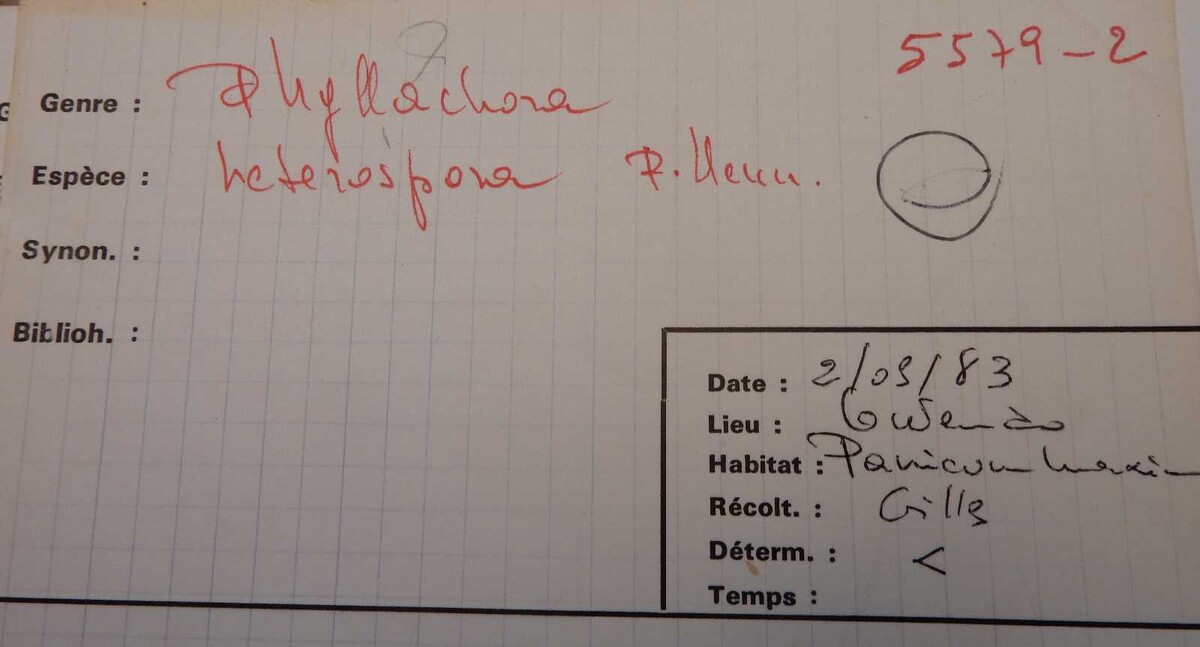 5579-2
Genre : Phyllachora
Espèce : heterospora P. Henn.
Synon. :
Biblioh. :
Date : 2/09/83
Lieu :
Habitat : Panicum maxim
Récolt. : Gilles
Déterm. : <
Temps :